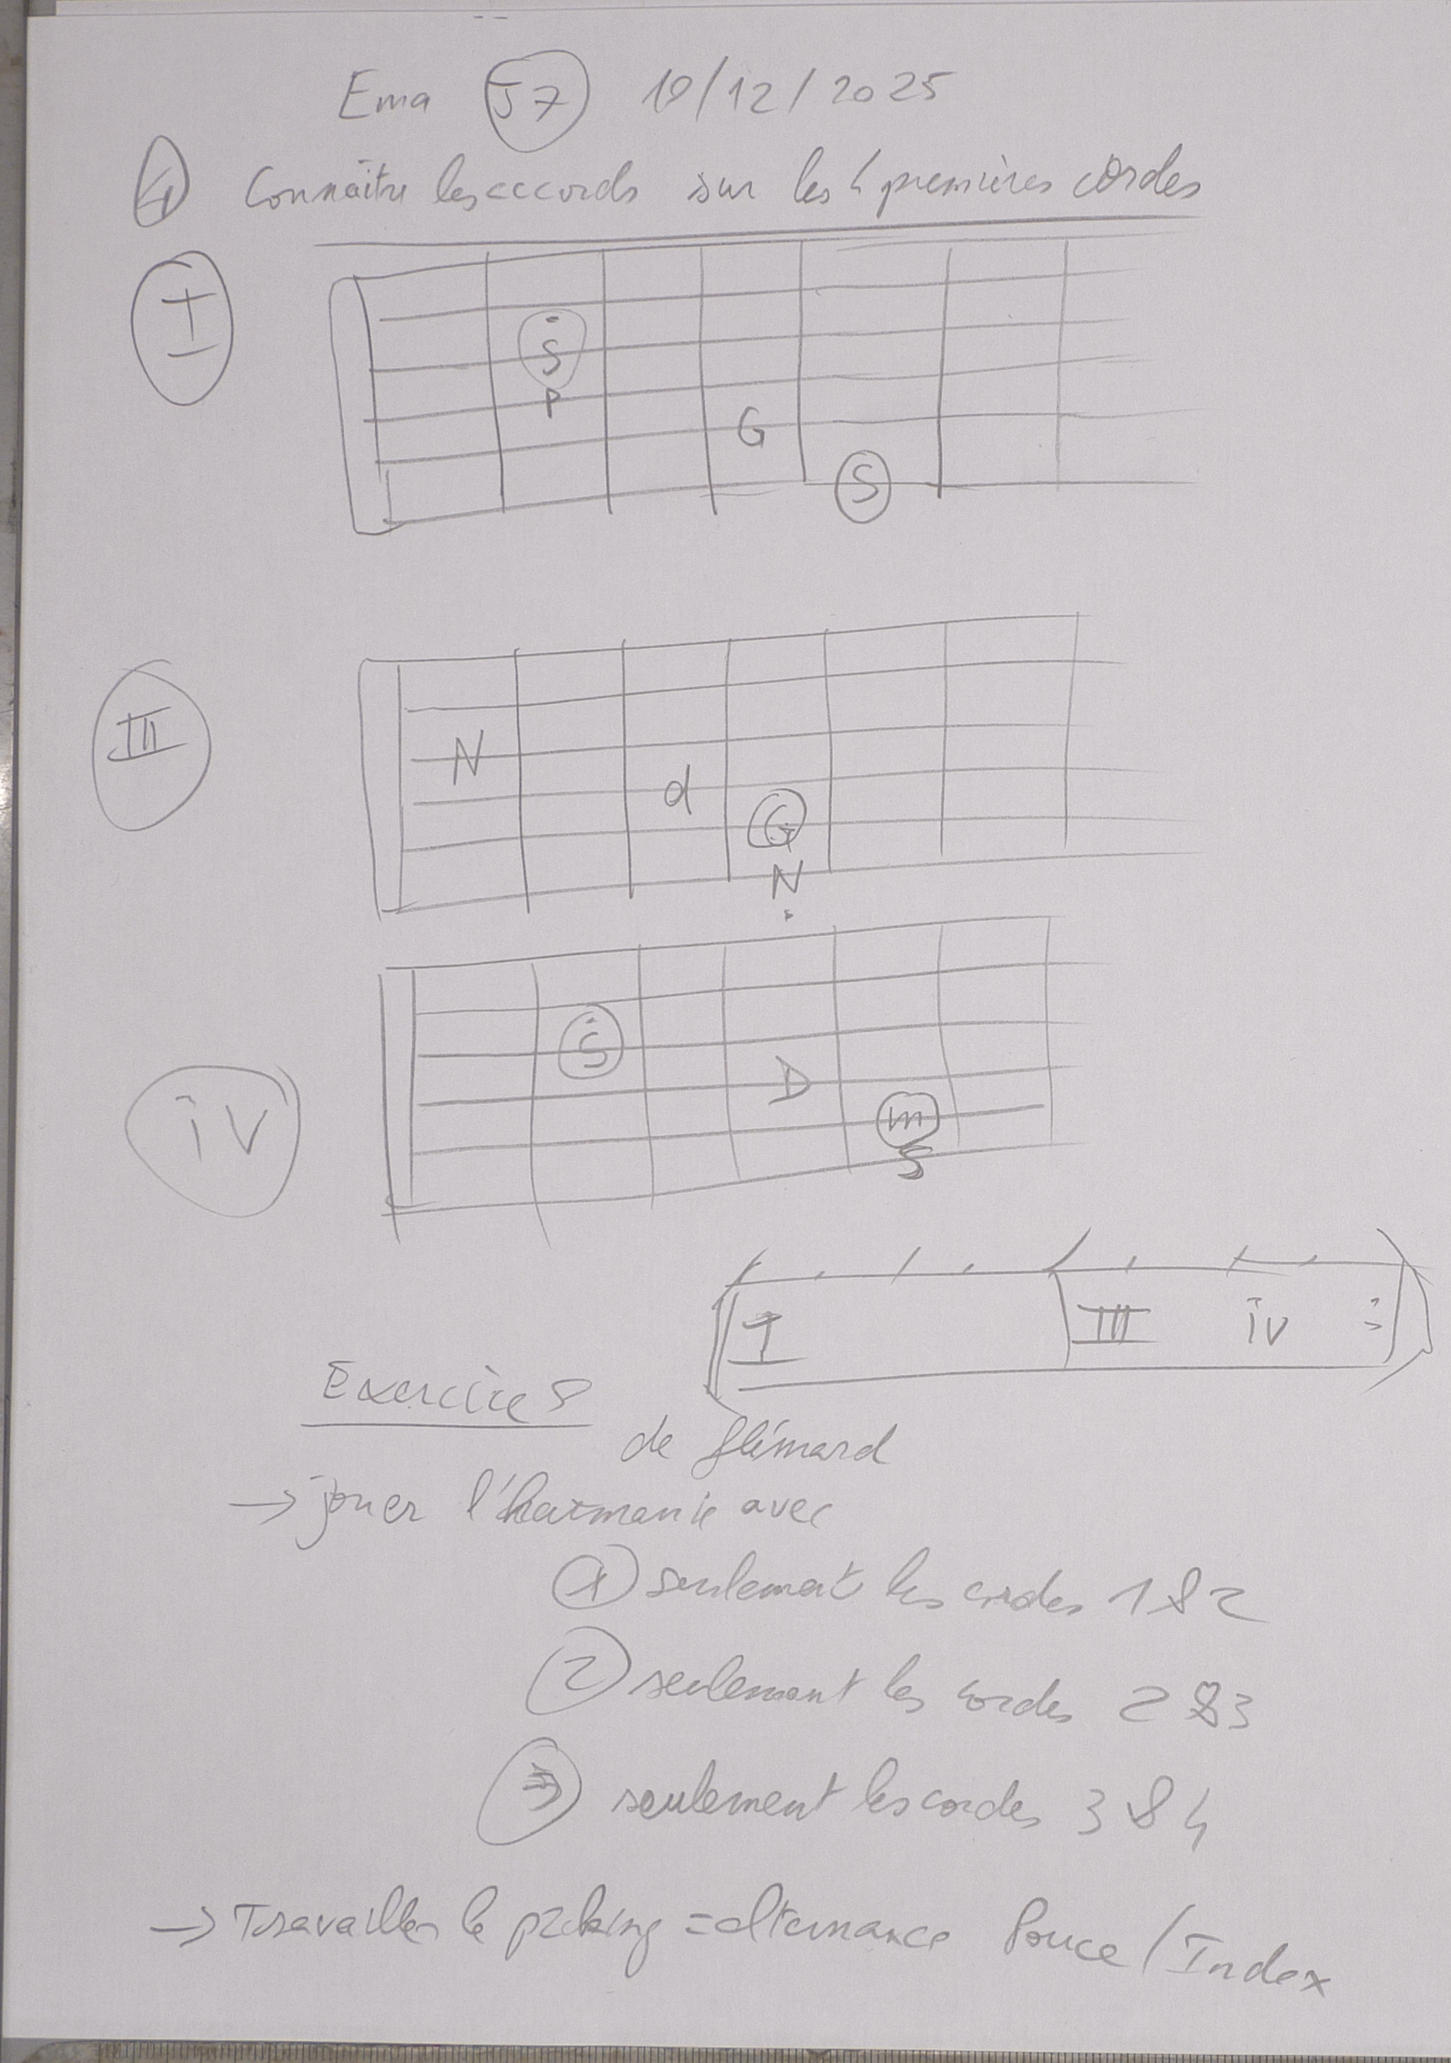 Ema J7 19/12/2025
Connaître les accords sur les 4 premières cordes
I
S
P
G
S
III
N
d
G
N
iv
S
D
m
S
I III iv
Exercices
de flémard
→ jouer l'harmonie avec
1 seulement les cordes 1 & 2
2 seulement les cordes 2 & 3
3 seulement les cordes 3 & 4
→ Travailler le picking = alternance Pouce / Index